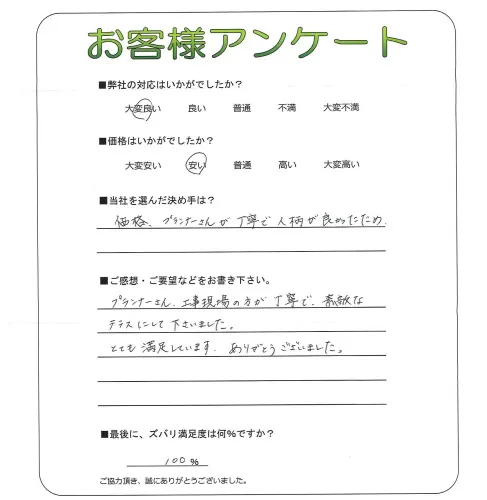 お客様アンケート
■弊社の対応はいかがでしたか？
大変良い 良い 普通 不満 大変不満
■価格はいかがでしたか？
大変安い 安い 普通 高い 大変高い
■当社を選んだ決め手は？
価格、プランナーさんが丁寧で人柄が良かったため
■ご感想・ご要望などをお書き下さい。
プランナーさん、工事現場の方が丁寧で、素敵な
テラスにして下さいました。
とても満足しています。ありがとうございました。
■最後に、ズバリ満足度は何%ですか？
100%
ご協力頂き、誠にありがとうございました。